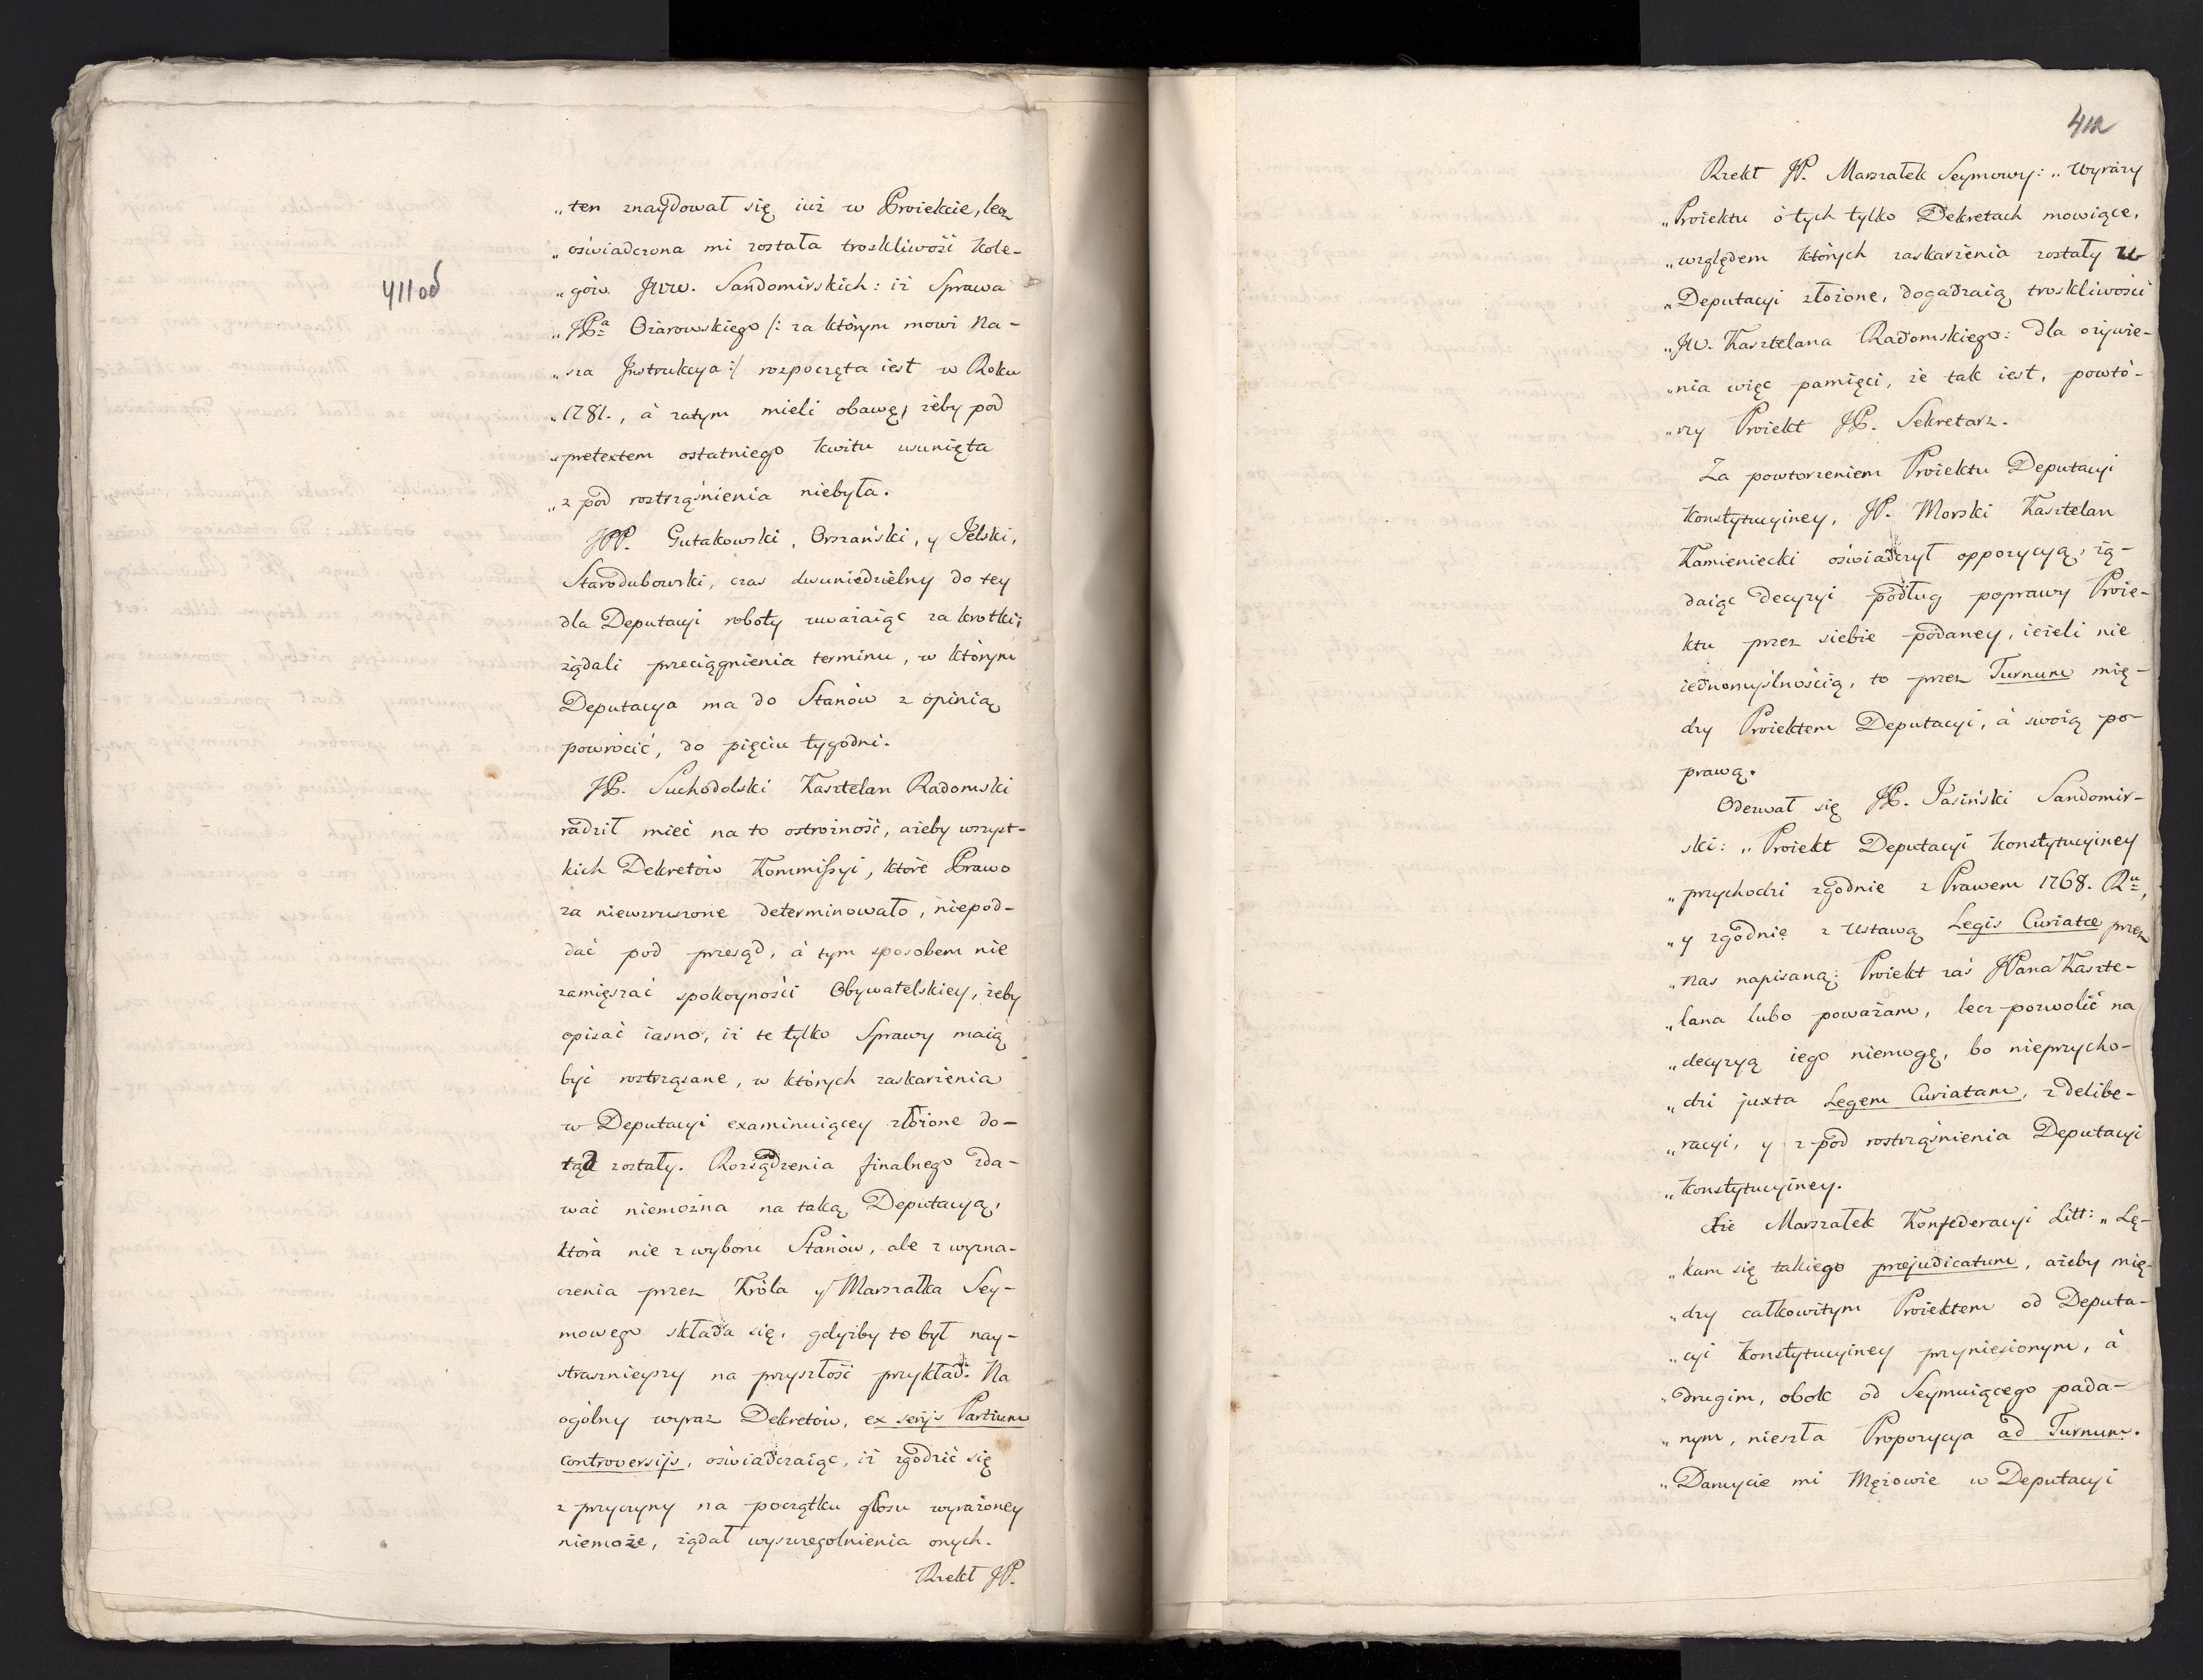 411об
„ten znaydował się iuż w Proiekcie, lecz
„oświadczona mi została troskliwość Kole-
„gów JWW. Sandomirskich: iż Sprawa
„JPa Ożarowskiego /: za którym mowi Na-
„sza Jnstrukcya :/ rozpoczęta iest w Roku
„1781., à zatym mieli obawę, żeby pod
„pretextem ostatniego kwitu usunięta
„z pod roztrząśnienia niebyła.
JPP. Gutakowski, Orszański, y Jelski,
Starodubowski, czas dwuniedzielny do tey
dla Deputacyi roboty uważaiąc za krotki,
żądali przeciągnienia terminu, w którym
Deputacya ma do Stanów z opinią
powrócić, do pięciu tygodni.
JP. Suchodolski Kasztelan Radomski
radził mieć na to ostrożność, ażeby wszyst-
kich Dekretów Kommissyi, które Prawo
za niewzruszone determinowało, niepod-
dać pod przesąd, à tym sposobem nie
zamięszać spokoyności Obywatelskiey, żeby
opisać iasno, iż te tylko Sprawy maią
być roztrząsane, w których zaskarżenia
w Deputacyi examinuiącey złożone do-
tąd zostały. Rozsądzenia finalnego zda-
wać niemożna na taką Deputacyą,
która nie z wyboru Stanów, ale z wyzna-
czenia przez Króla y Marszałka Sey-
mowego składa się, gdyżby to był nay-
strasznieyszy na przyszłość przykład. Na
ogólny wyraz Dekretów, ex serijs Partium
controversijs, oświadczaiąc, iż zgodzić się
z przyczyny na początku głosu wyrażoney
niemoże, żądał wyszczegolnienia onych.
Rzekł JP.
412
Rzekł JP. Marszałek Seymowy: „Wyrazy
„Proiektu ó tych tylko Dekretach mowiące,
„względem których zaskarżenia zostały w
„Deputacyi złożone, dogadzaią troskliwości
„JW. Kasztelana Radomskiego: dla ożywie-
„nia więc pamięci, że tak iest, powtó-
„rzy Proiekt JP. Sekretarz.
Za powtorzeniem Proiektu Deputacyi
Konstytucyiney, JP. Morski Kasztelan
Kamieniecki oświadczył oppozycyą, żą-
daiąc decyzyi podług poprawy Proie-
ktu przez siebie podaney, ieżeli nie
iednomyślnością, to przez Turnum mię-
dzy Proiektem Deputacyi, à swoią po-
prawą.
Odezwał się JP. Jasiński Sandomir-
ski: „Proiekt Deputacyi Konstytucyiney
„przychodzi zgodnie z Prawem 1768. Ru,
„y zgodnie z Ustawą Legis Curiatæ przez
„nas napisaną; Proiekt zaś JPana Kaszte-
„lana lubo poważam, lecz pozwolić na
„decyzyą iego niemogę, bo nieprzycho-
„dzi juxta Legem Curiatam, z delibe-
„racyi, y z pod roztrząśnienia Deputacyi
„Konstytucyiney.
Xże Marszałek Konfederacyi Litt: „Lę-
„kam się takiego præjudicatum, ażeby mię-
„dzy całkowitym Proiektem od Deputa-
„cyi Konstytucyiney przyniesionym, à
„drugim, obok od Seymuiącego poda-
„nym, nieszła Propozycya ad Turnum.
„Daruycie mi Mężowie w Deputacyi